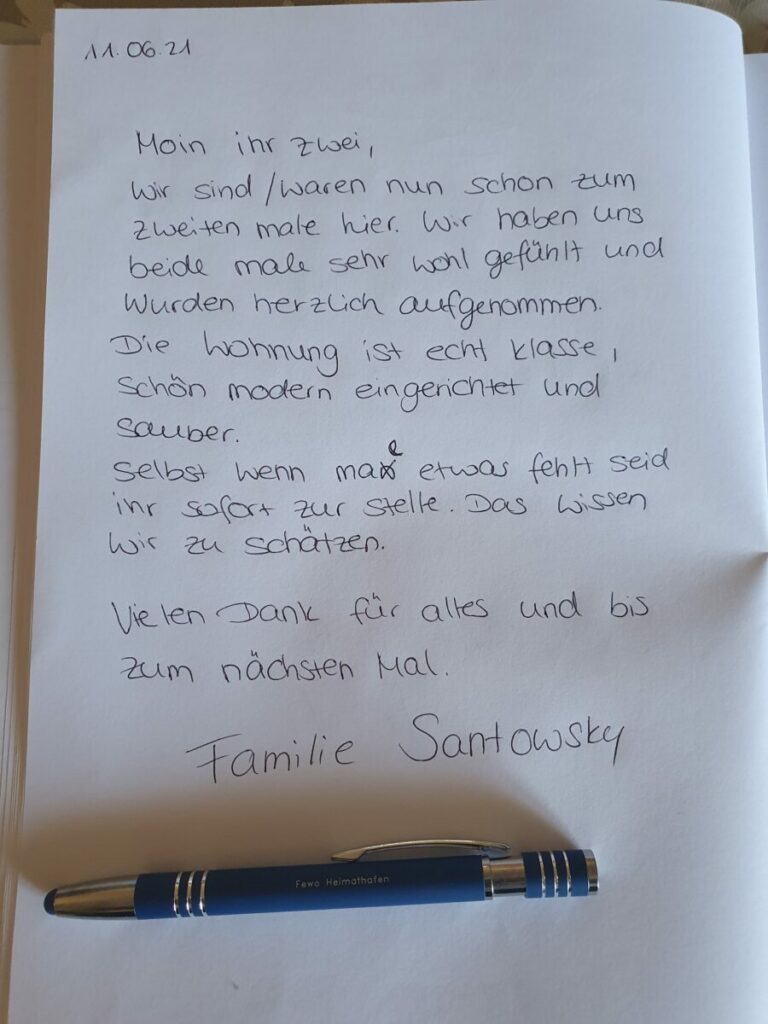 11.06.21
Moin ihr zwei,
wir sind/waren nun schon zum
zweiten male hier. Wir haben uns
beide male sehr wohl gefühlt und
wurden herzlich aufgenommen.
Die Wohnung ist echt klasse,
schön modern eingerichtet und
sauber.
Selbst wenn male etwas fehlt seid
ihr sofort zur stelle. Das wissen
wir zu schätzen.
Vielen Dank für alles und bis
zum nächsten Mal.
Familie Santowsky
Fewo Heimathafen